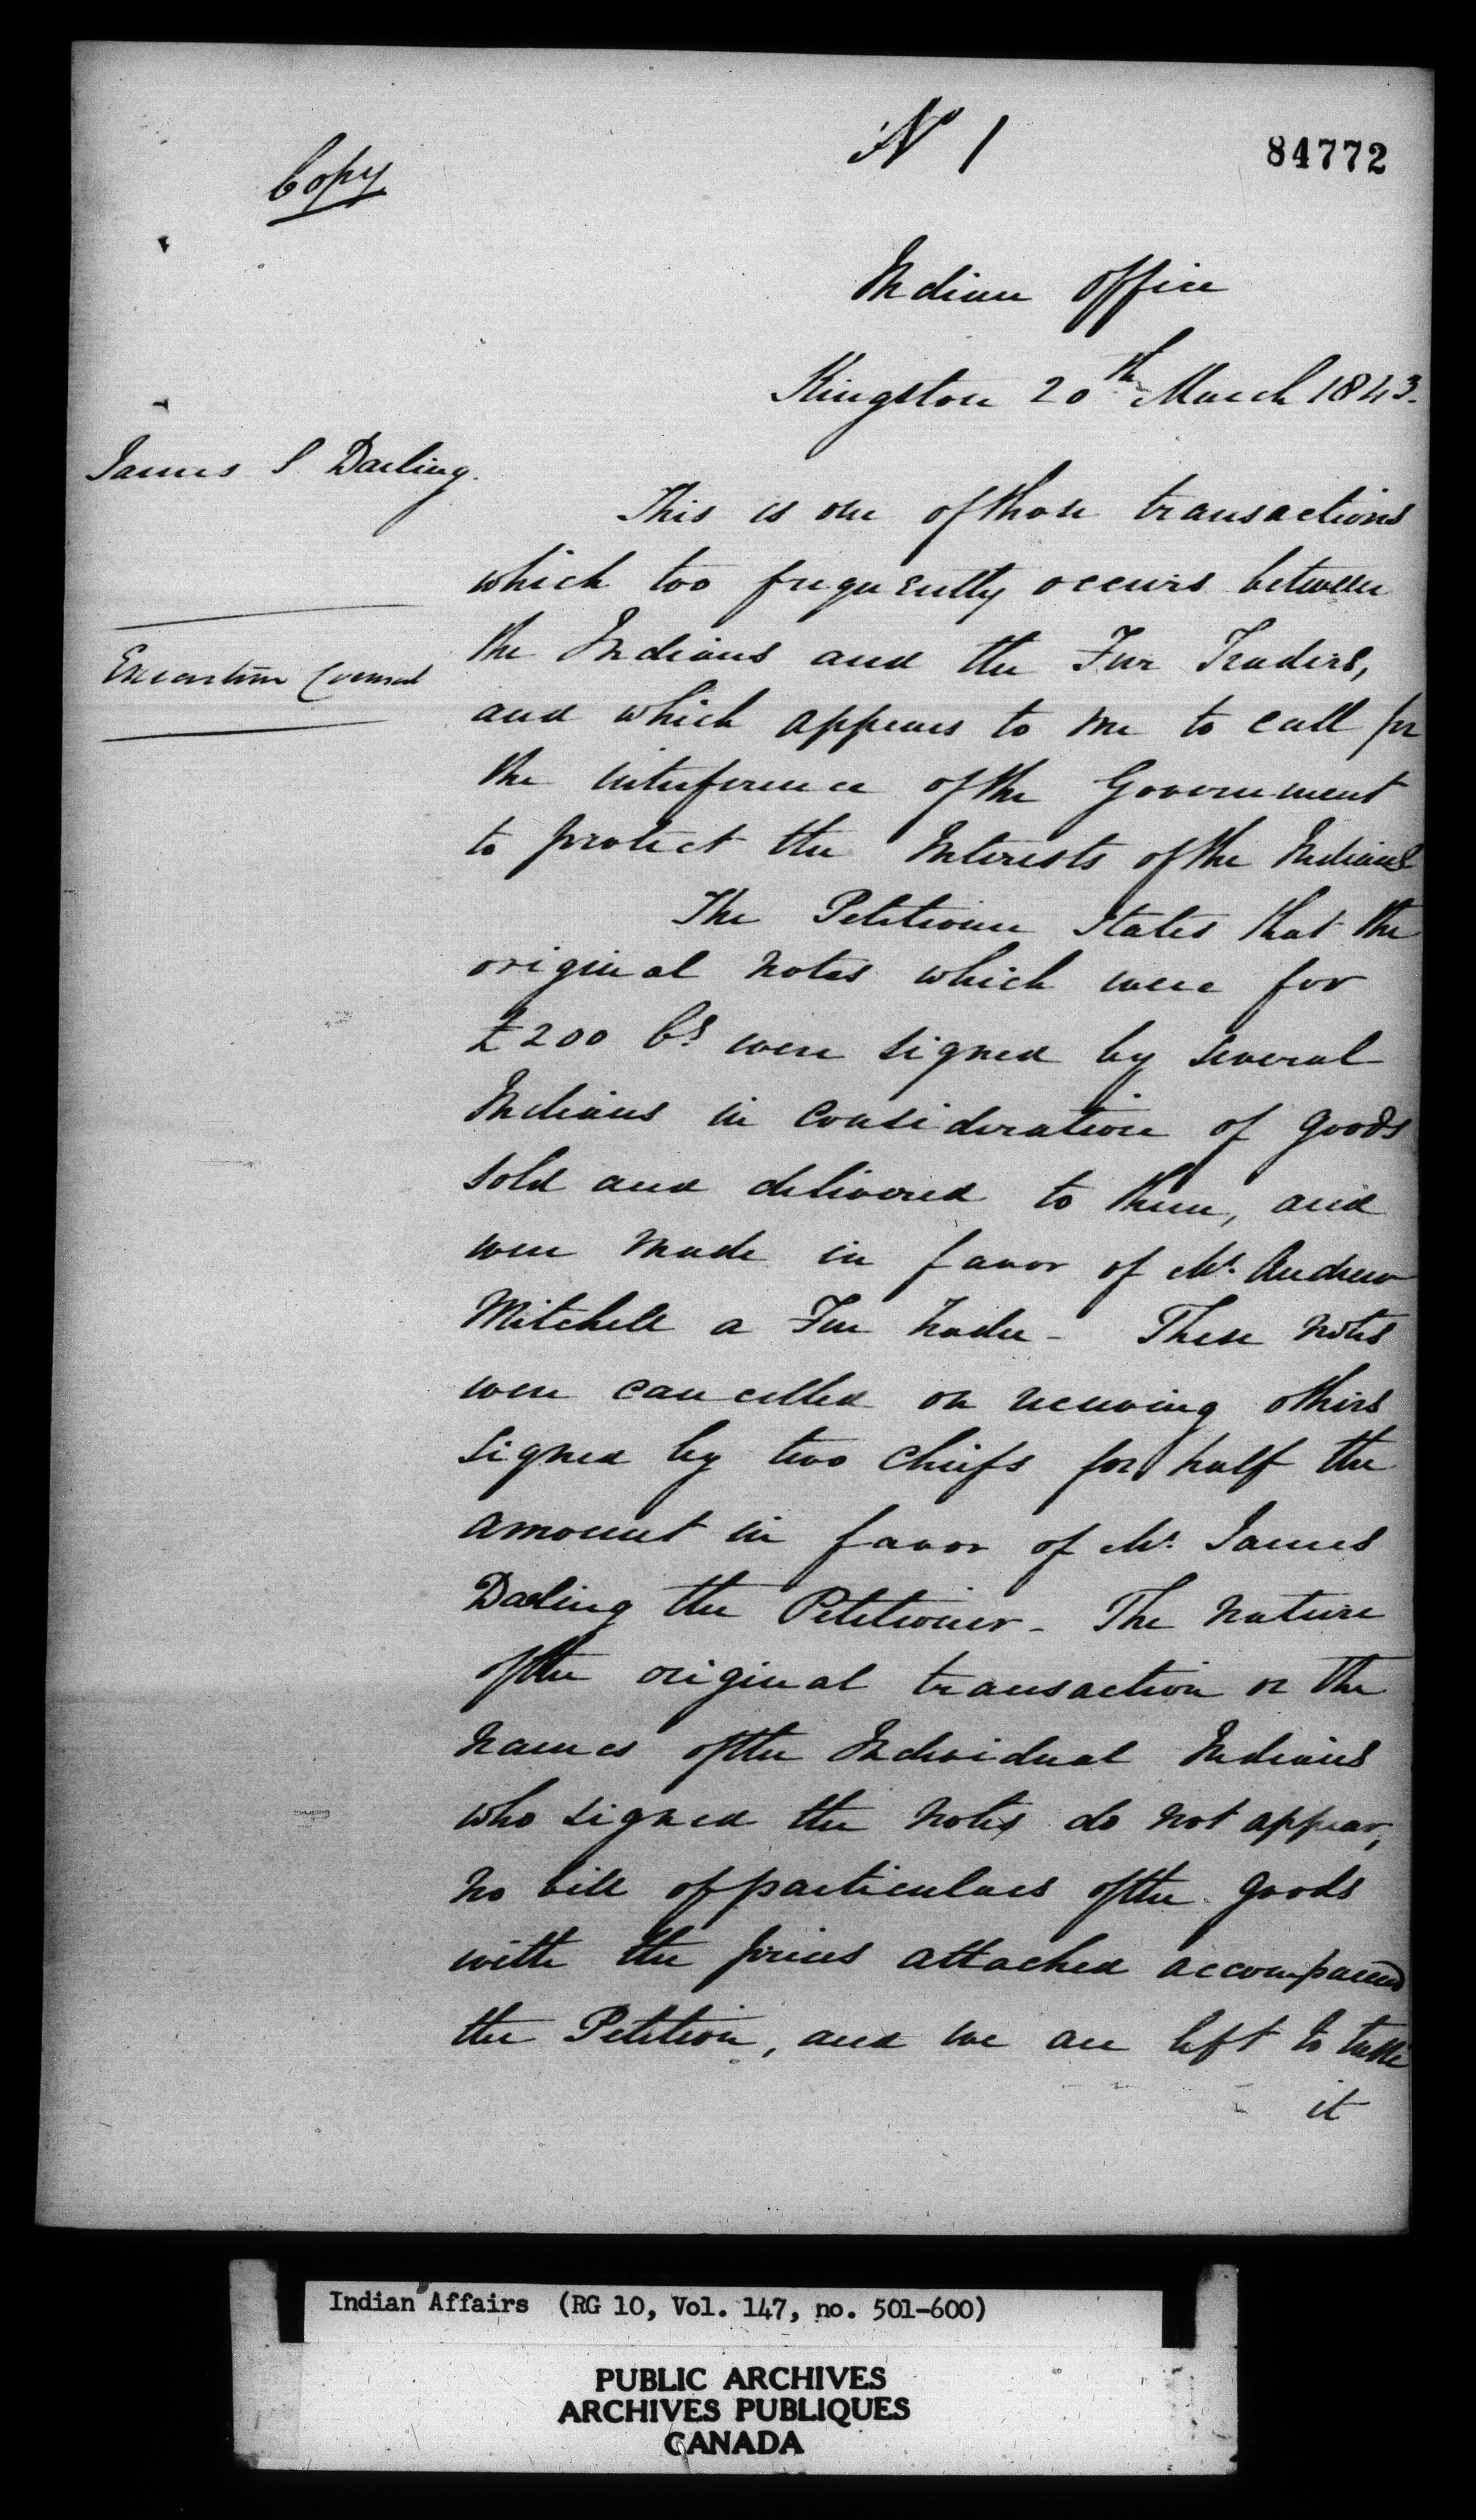 No 1
84772
Copy
Indian Office
Kingston 20th March 1843.
James S Darling.
Executive Council
This is one of those transactions
which too frequently occurs between
the Indians and the Fur Traders,
and which appears to me to call for
the interference of the Government
to protect the Interests of the Indians
The Petitioner States that the
original notes which were for
£200 Cy were signed by several
Indians in consideration of goods
sold and delivered to them, and
were made in favor of Mr. Andrew
Mitchell a Fur trader - These notes
were cancelled on receiving others
signed by two Chiefs for half the
amount in favor of Mr. James
Darling the Petitioner - The nature
of the original transaction or the
names of the Individual Indians
who signed the notes do not appear,
no bill of particulars of the goods
with the prices attached accompanied
the Petition, and we are left to take
it
Indian Affairs (RG 10, Vol. 147, no. 501-600)
PUBLIC ARCHIVES
ARCHIVES PUBLIQUES
CANADA